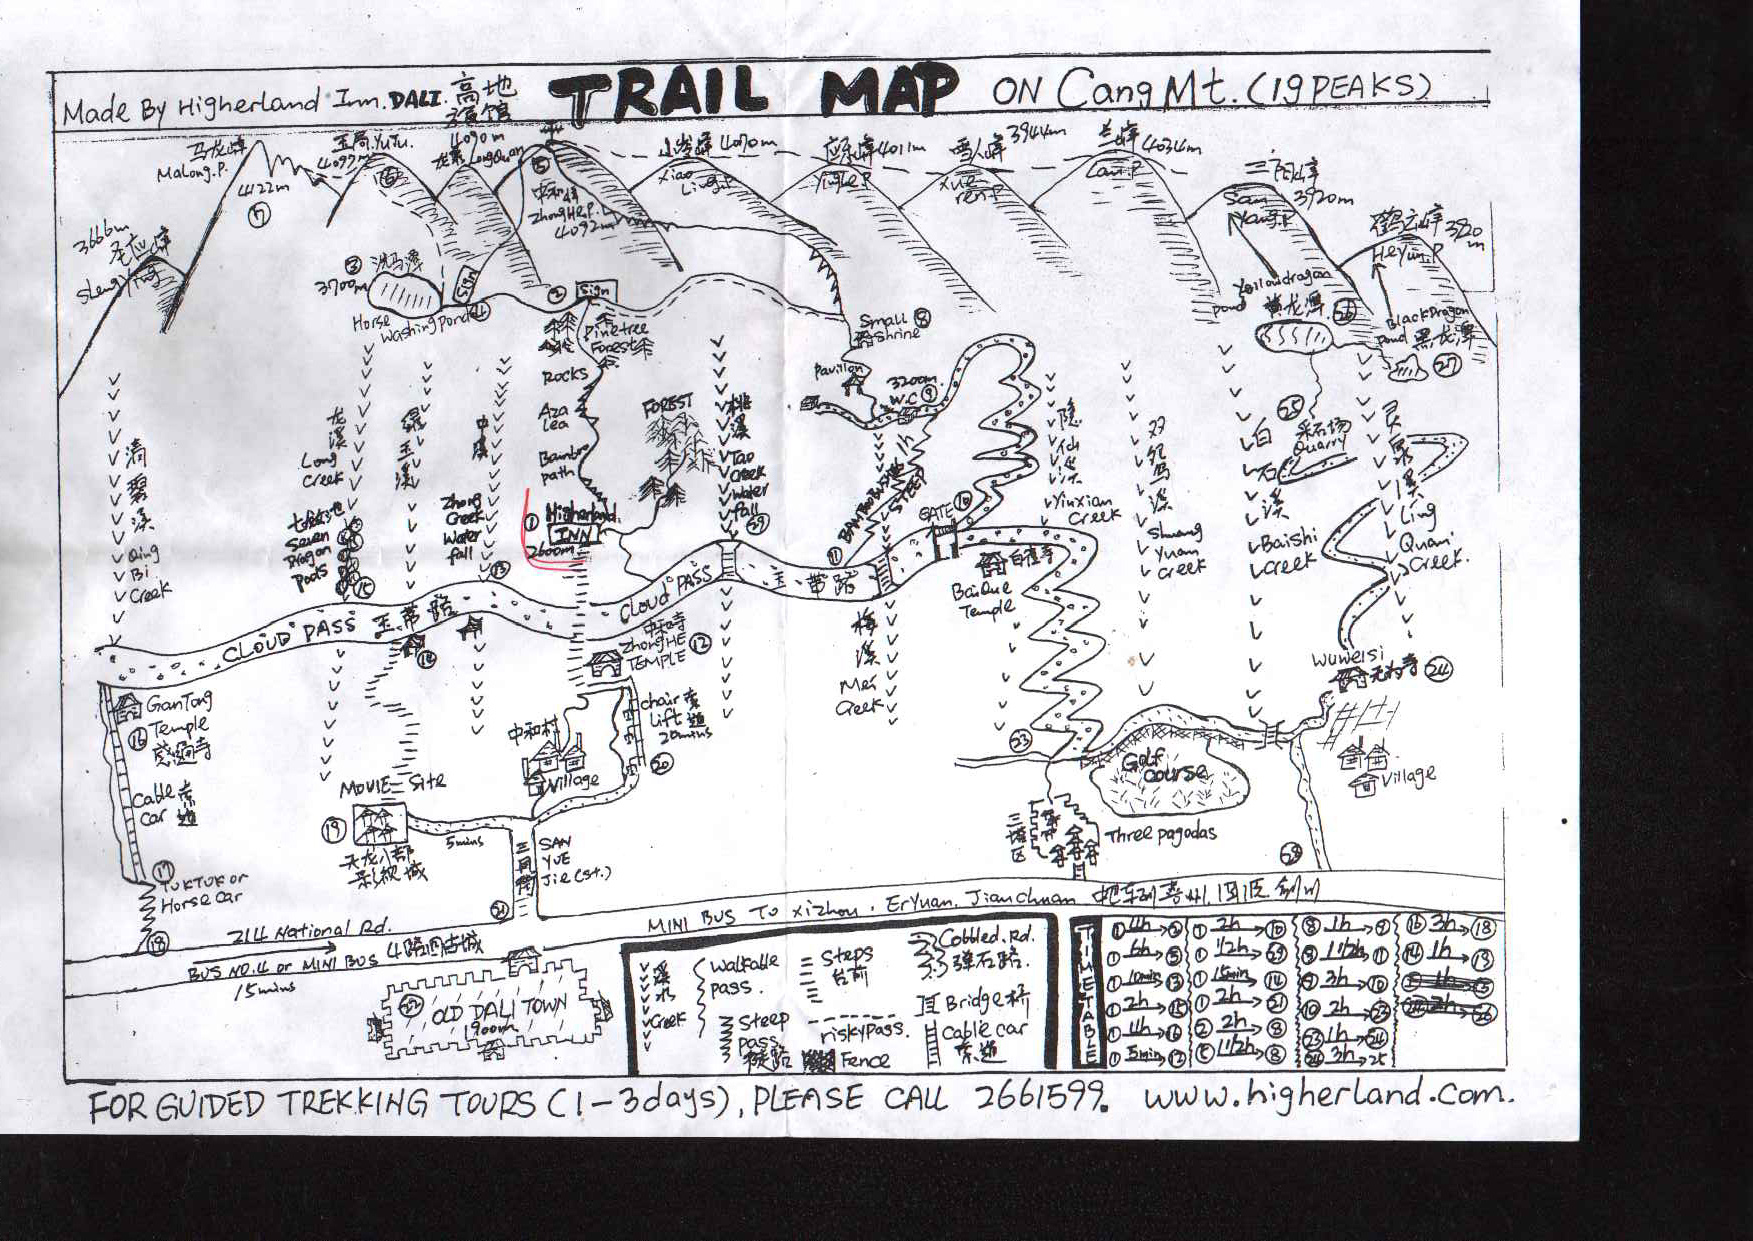 Made By Higherland Inn. DALI. 高地
TRAIL MAP ON Cang Mt. (19 PEAKS)
马龙峰
MaLong.P.
4122m
⑦
玉局.YuJu.
4097m
⑥
4090m
龙泉 LongQuan
⑤
中和峰
ZhongHe.P.
4092m
小岑峰 4070m
Xiao
Ling.P
应乐峰 4011m
YingLe.P
雪人峰 3944m
Xue-
ren.P
兰峰
4034m
Lan.P
三阳峰
3920m
San
Yang.P
鹤云峰 3920
m
HeYun.P
3666m
圣应峰
ShengYing
③ 洗马潭
3700m
Horse
Washing pond
④
Sign
② Sign
Pinetree
Forest
Rocks
Aza
lea
Bamboo
path
FOREST
① Higherland
INN
2600m
Small ⑧
Shrine
Pavilion
3200m
W.C ⑨
Yellowdragon
pond 黄龙潭 ㉖
BlackDragon
pond 黑龙潭
㉗
㉕
采石场
Quarry
清碧溪
Qing
Bi
Creek
龙溪
Long
Creek
绿玉溪
中溪
Zhong
Creek
Water
fall
⑬
Seven
Dragon
pools
⑮
桃溪
Tao
Creek
Water
fall
㉙
STEEP
⑪
GATE ⑩
隐仙溪
YinXian
Creek
双鸳溪
Shuang
Yuan
Creek
白石溪
BaiShi
Creek
灵泉溪
Ling
Quan
Creek.
CLOUD PASS 玉带路
CLOUD PASS
带路
BaiQue
Temple
梅溪
Mei
Creek
中和寺
ZhongHE
TEMPLE ⑫
⑭
GanTong
Temple
⑯ 感通寺
Cable 索
car 道
⑰
TUKTUK or
Horse car
⑱
MOVIE Site
⑲
天龙八部
影视城
5mins
中和村
Village
chair 索
lift 道
20mins
⑳
三月街
SAN
YUE
Jie (st.)
㉑
㉓
Golf
Course
Three pagodas
三塔区
WuWeiSi
无为寺 ㉔
Village
㉘
214 National Rd.
BUS NO.4 or MINI BUS
15mins
MINI BUS TO XiZhou. ErYuan. JianChuan
㉒ OLD DALI TOWN
1900m
溪水
Creek
Walkable
pass.
Steep
pass
Steps
台阶
risky pass.
Fence
Cobbled. Rd.
弹石路.
Bridge 桥
Cable car
索道
TIMETABLE
① 4h→②
① 6h→⑤
① 10mins→⑬
① 2h→⑮
① 4h→⑯
① 5min→⑫
① 2h→⑩
① 1/2h→㉙
① 15min→⑭
① 2h→㉑
② 2h→⑧
⑤ 1 1/2h→⑧
⑧ 1h→⑨
⑨ 1 1/2h→⑪
⑨ 3h→⑩
⑩ 2h→㉓
㉓ 1h→㉔
㉔ 3h→25
⑯ 3h→⑱
⑭ 1h→⑲
FOR GUIDED TREKKING TOURS (1-3days), PLEASE CALL 2661599. www.higherland.com.